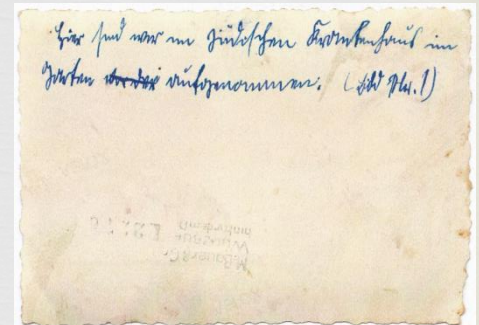 Hier sind wir im Jüdischen Krankenhaus im
Garten aufgenommen. (Bild Nr. 1)